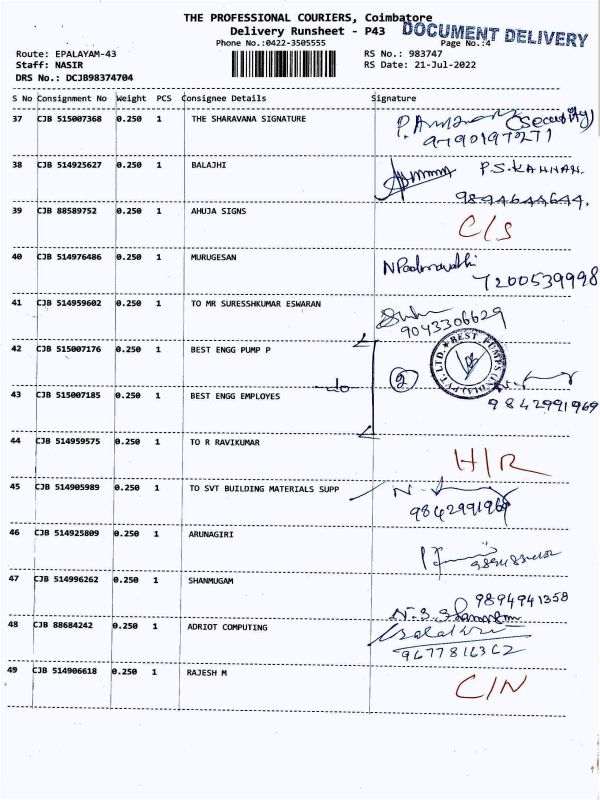 THE PROFESSIONAL COURIERS, Coimbatore
Delivery Runsheet - P43
DOCUMENT DELIVERY
Phone No.:0422-3505555
Page No.:4
Route: EPALAYAM-43
RS No.: 983747
Staff: NASIR
RS Date: 21-Jul-2022
DRS No.: DCJB98374704
S No Consignment No Weight PCS Consignee Details Signature
37 CJB 515007368 0.250 1 THE SHARAVANA SIGNATURE (Security)
9790197271
38 CJB 514925627 0.250 1 BALAJHI P.S.KANNAN.
9844644644.
39 CJB 88589752 0.250 1 AHUJA SIGNS C/S
40 CJB 514976486 0.250 1 MURUGESAN N Padmavathi
7200539998
41 CJB 514959602 0.250 1 TO MR SURESSHKUMAR ESWARAN
9043306629
42 CJB 515007176 0.250 1 BEST ENGG PUMP P
2
BEST PUMPS (INDIA) PVT. LTD.
43 CJB 515007185 0.250 1 BEST ENGG EMPLOYES
9842991969
44 CJB 514959575 0.250 1 TO R RAVIKUMAR H/R
45 CJB 514905989 0.250 1 TO SVT BUILDING MATERIALS SUPP
9842991969
46 CJB 514925809 0.250 1 ARUNAGIRI
47 CJB 514996262 0.250 1 SHANMUGAM 9894941358
48 CJB 88684242 0.250 1 ADRIOT COMPUTING
9677816362
49 CJB 514906618 0.250 1 RAJESH M C/N